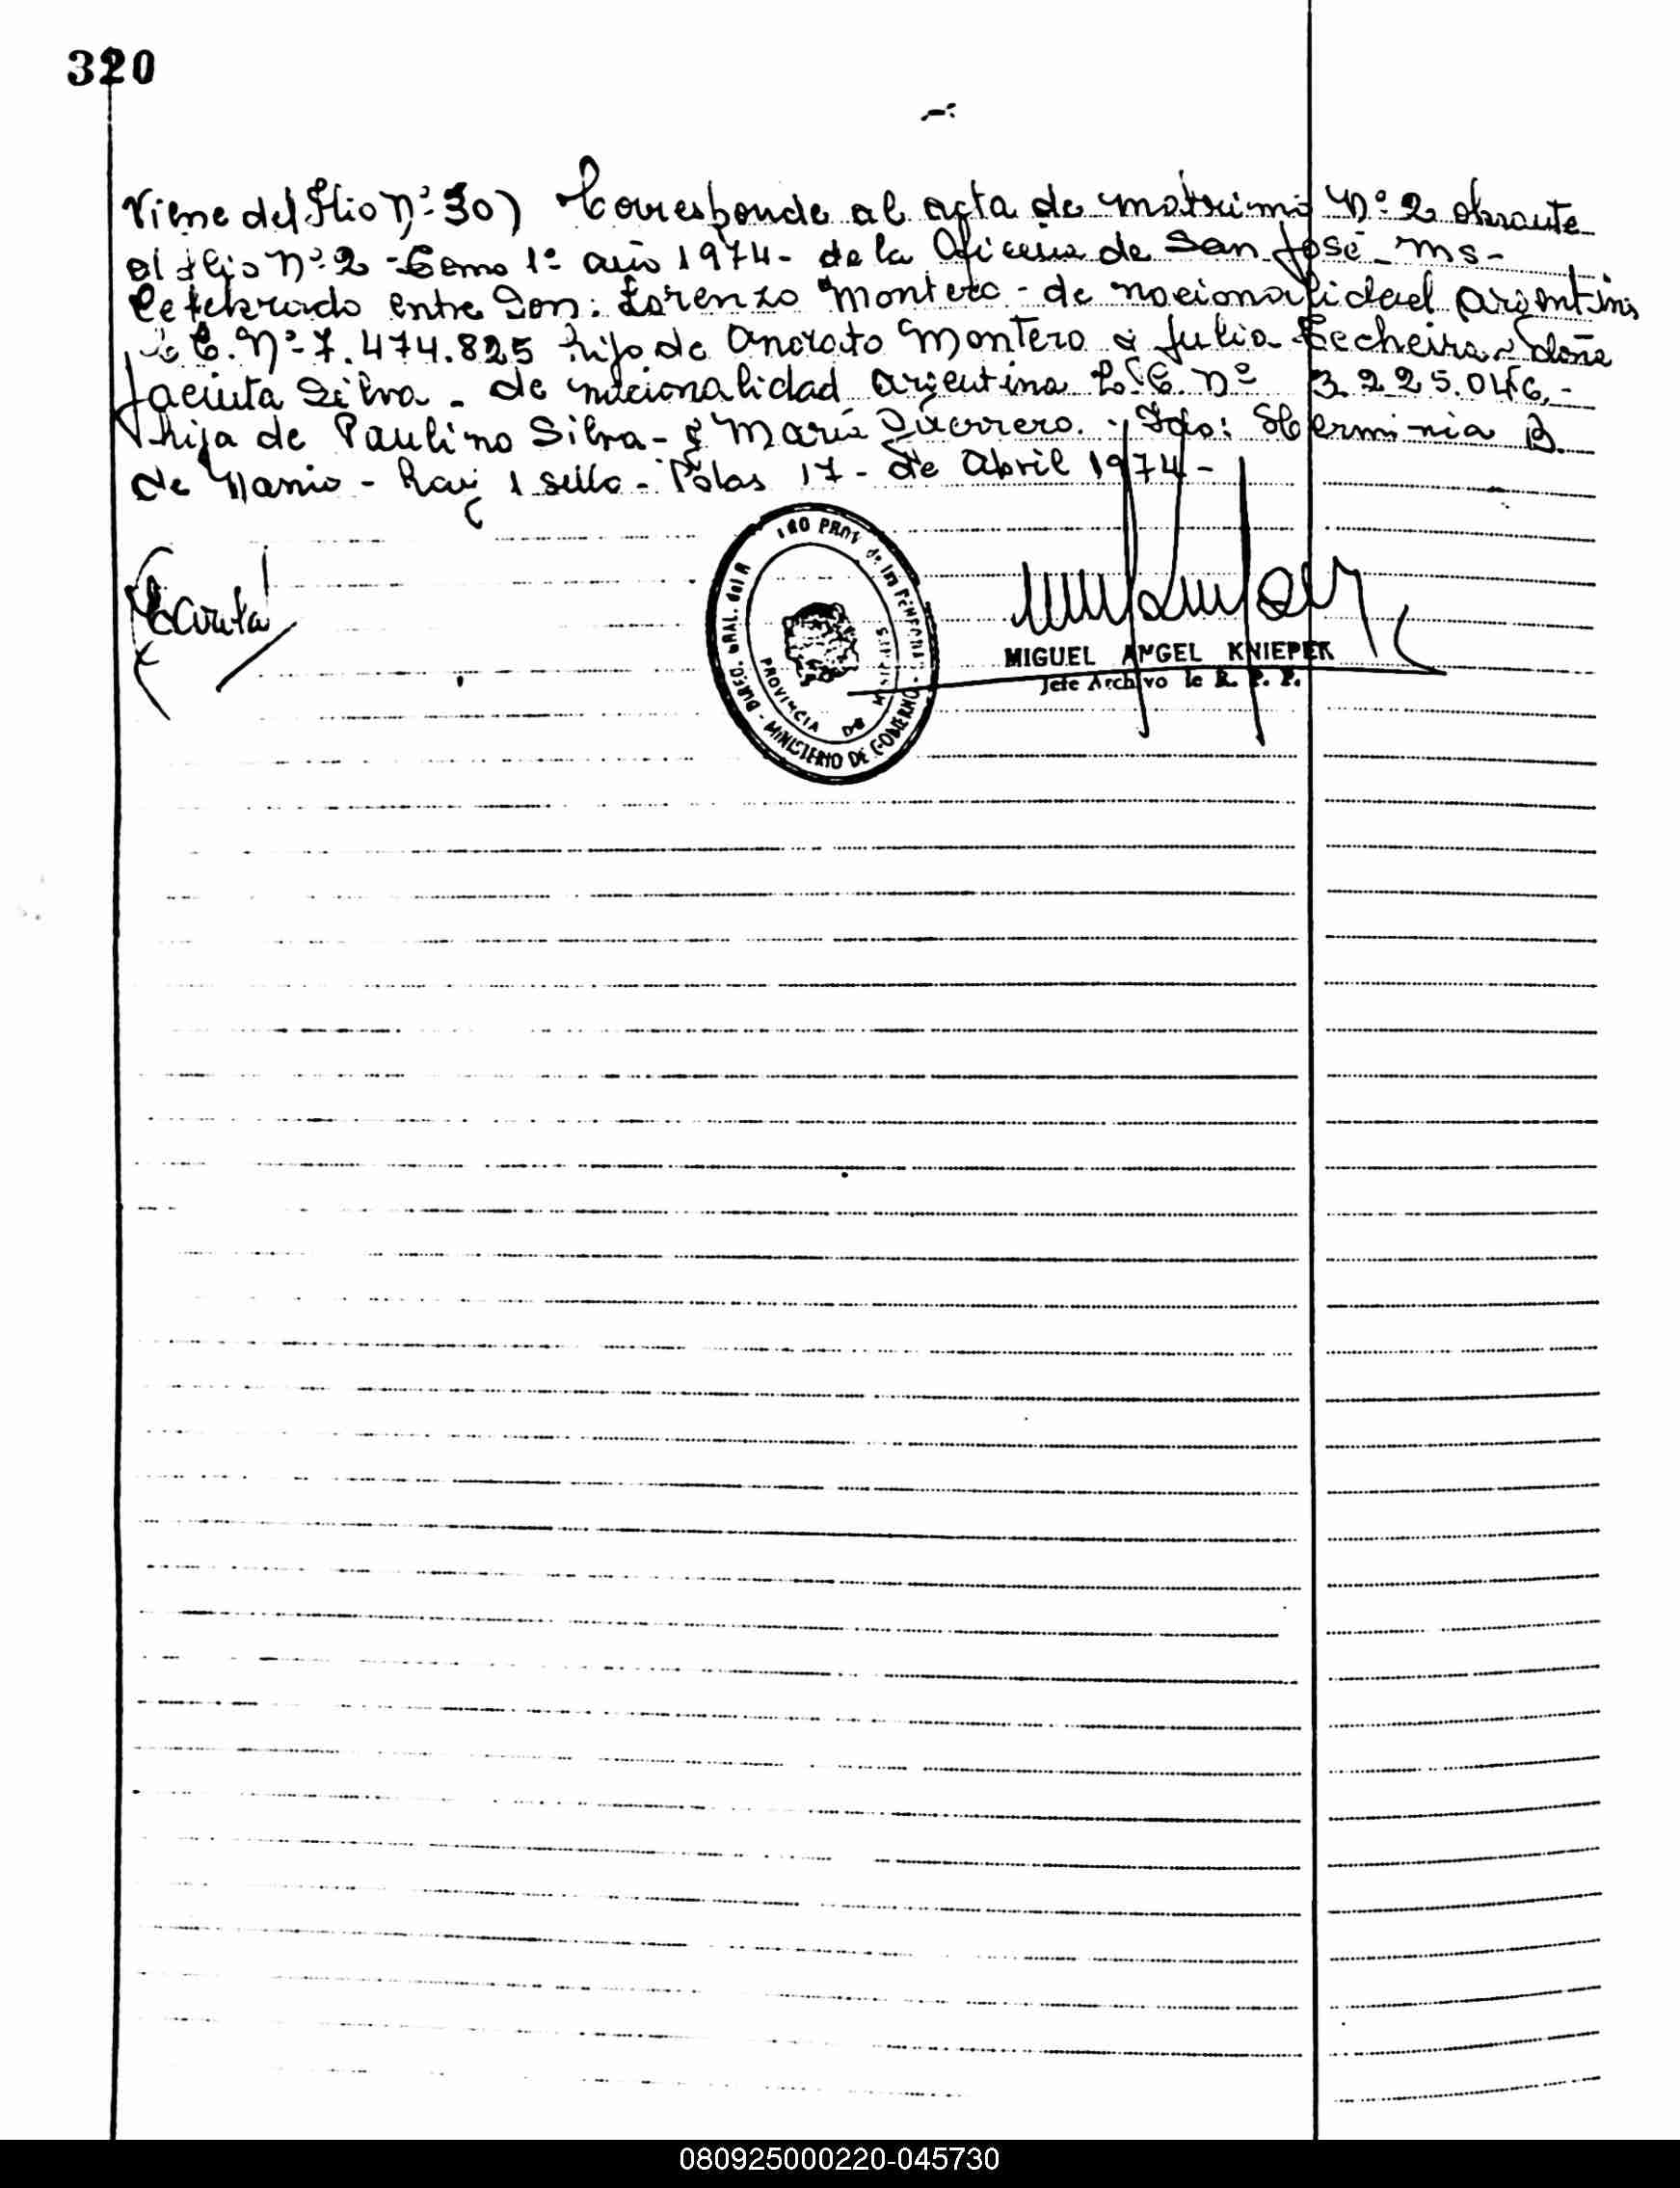 320
Viene del Flio Nº 30) Corresponde al acta de matrimo Nº 2 obrante
al flio Nº 2 - Tomo 1º año 1974 - de la Oficina de San José - Ms -
Celebrado entre Don: Lorenzo Montero - de nacionalidad argentina
L.E. Nº 7.474.825 hijo de Anorato Montero y Julia Techeira y doña
Jacinta Silva - de nacionalidad argentina L.C. Nº 3.225.046 -
hija de Paulino Silva - y María Guerrero. - Fdo: Herminia B.
de - Hay 1 sello - Pdas 17 - de Abril 1974 -
DIREC. GRAL. del R PROV. de las PERSONAS - MINISTERIO DE GOBIERNO
PROVINCIA DE MISIONES
MIGUEL ANGEL KNIEPEK
Jefe Archivo de R. P. P.
080925000220-045730